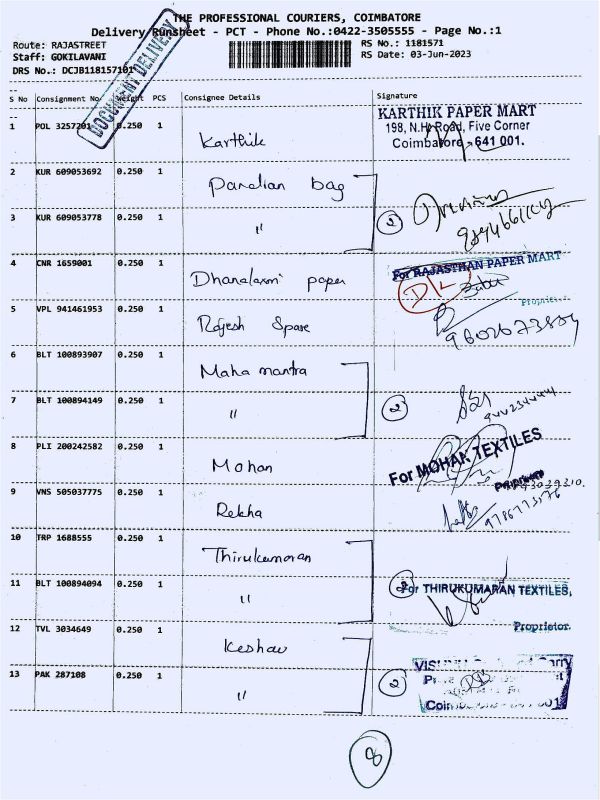 THE PROFESSIONAL COURIERS, COIMBATORE
Delivery Runsheet - PCT - Phone No.:0422-3505555 - Page No.:1
Route: RAJASTREET RS No.: 1181571
Staff: GOKILAVANI RS Date: 03-Jun-2023
DRS No.: DCJB118157101
DOCUMENT DELIVERY
S No Consignment No Weight PCS Consignee Details Signature
1 POL 3257201 0.250 1 Karthik
KARTHIK PAPER MART
198, N.H. Road, Five Corner
Coimbatore - 641 001.
2 KUR 609053692 0.250 1 Pandian bag
3 KUR 609053778 0.250 1 "
2
4 CNR 1659001 0.250 1 Dhanalaxmi paper
For RAJASTHAN PAPER MART
D/L
5 VPL 941461953 0.250 1 Rajesh Spare
6 BLT 100893907 0.250 1 Maha mantra
7 BLT 100894149 0.250 1 "
2
8 PLI 200242582 0.250 1 Mohan
For MOHAK TEXTILES
9 VNS 505037775 0.250 1 Rekha
10 TRP 1688555 0.250 1 Thirukumaran
11 BLT 100894094 0.250 1 "
2
For THIRUKUMARAN TEXTILES,
Proprietor.
12 TVL 3034649 0.250 1 Keshav
13 PAK 287108 0.250 1 "
2
8